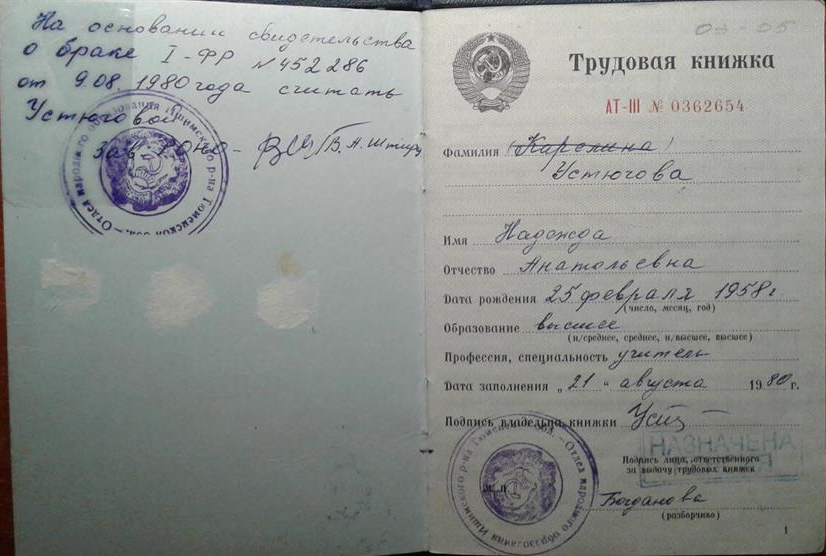 На основании свидетельства
о браке I-ФР №452286
от 9.08.1980 года считать
Устюговой
Зав. РОНО - В.А. Штиру
Отдел народного образования Ишимского р-на Тюменской обл.
03-05
Трудовая книжка
АТ-III № 0362654
Фамилия (Карелина)
Устюгова
Имя Надежда
Отчество Анатольевна
Дата рождения 25 февраля 1958г
(число, месяц, год)
Образование высшее
(н/среднее, среднее, н/высшее, высшее)
Профессия, специальность учитель
Дата заполнения „21" августа 1980 г.
Подпись владельца книжки Уст
НАЗНАЧЕНА
Подпись лица, ответственного
за выдачу трудовых книжек
М. П.
Богданова
(разборчиво)
Отдел народного образования Ишимского р-на Тюменской обл.
1